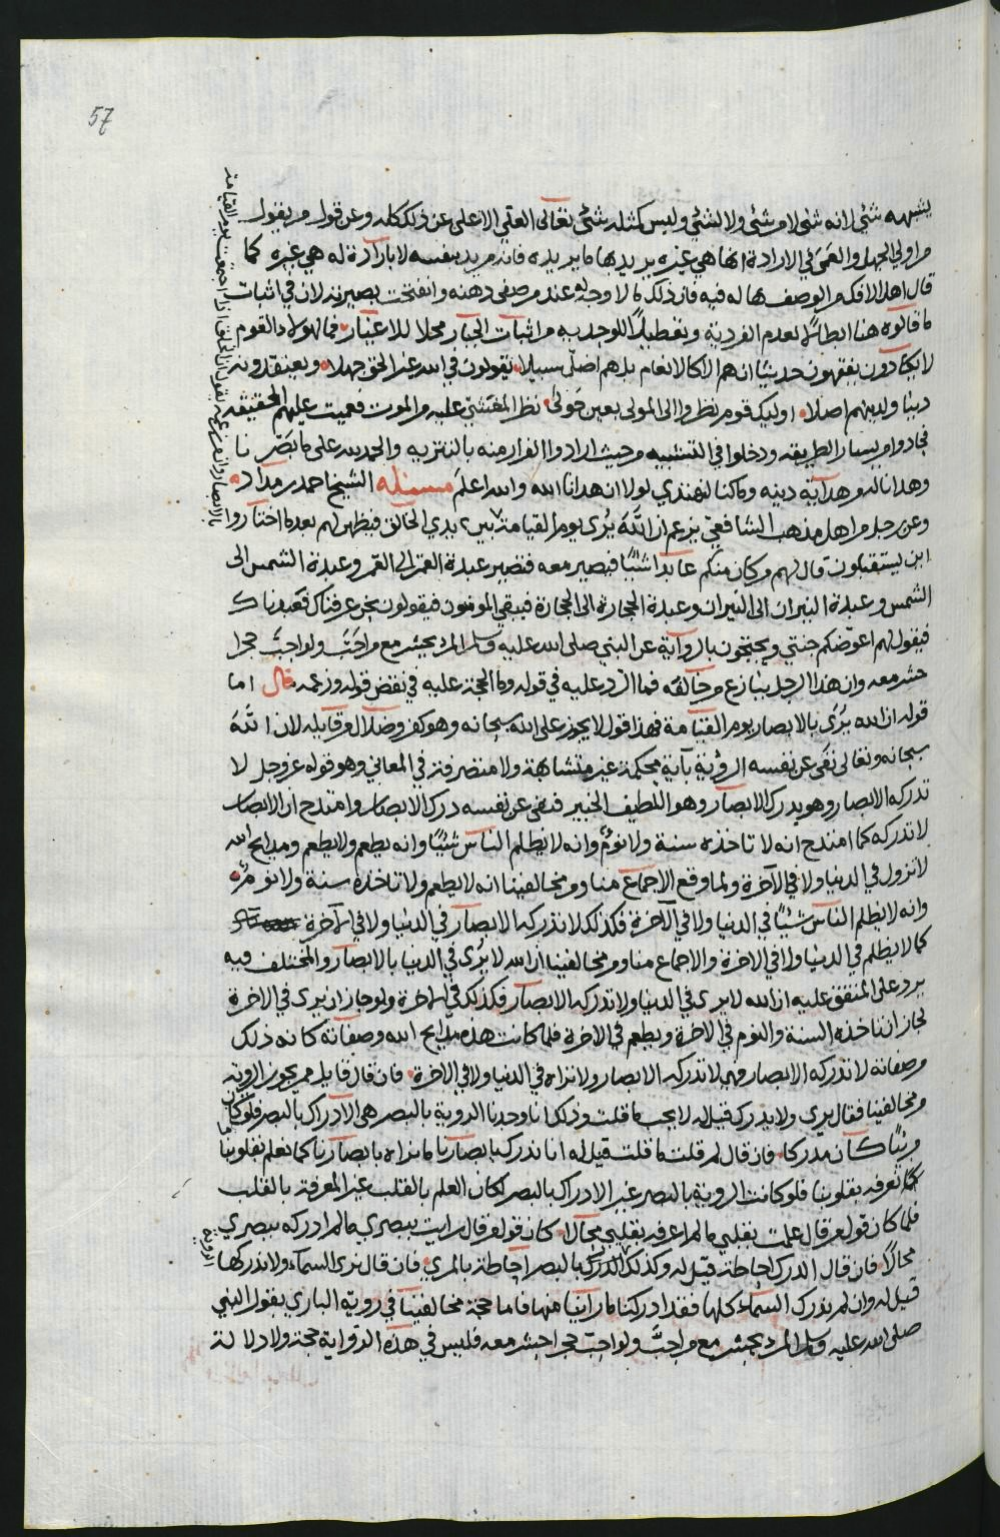 57
يشبهه شئ لانه شئ لا من شئ ولا لشئ وليس كمثله شئ تعالى العلي الاعلى عن ذلك كله وعن قول من يقول
من اولي الجهل والعمى في الارادة انها هي غيره يريد بها ما يريده فانه مريد بنفسه لا بارادة له هي غيره كما
قال اهل الافك من الوصف بها له فيه فان ذلك ما لا وجه له عند من صفى ذهنه وانفتحت بصيرته لان في اثبات
ما قالوه هنا ابطالا لعدم الفردية وتعطيلا للوحدية من اثبات الجبار محلا للاغيار فما لهؤلاء القوم
لا يكادون يفقهون حديثا ان هم الا كالانعام بل هم اضل سبيلا يقولون في الله غير الحق جهلا ويعتقدونه
دينا ولديهم اصلا اوليك قوم نظروا الى المولى بعين حولى نظر المغشي عليه من الموت فعميت عليهم الحقيقه
فحادوا من يسار الطريقه ودخلوا في التشبيه من حيث ارادوا الفرار منه بالتنزيه والحمد لله على ما بصر نا
وهدانا له من هداية دينه وما كنا لنهتدي لولا ان هدانا الله والله اعلم مسئله الشيخ احمد بن مداد
وعن رجل من اهل مذهب الشافعي يزعم ان الله يرى يوم القيامة بين يدي الخالق فيظهر لهم بعد ما اختاروا
اين يستقبلون قال لهم من كان منكم عابدا شيئا فيصير معه فتصير عبدة القمر الى القمر وعبدة الشمس الى
الشمس وعبدة النيران الى النيران وعبدة الحجارة الى الحجارة فيبقى المؤمنون فيقولون نحن عرفناك فعبدناك
فيقول لهم اعوضكم جنتي ويحتجون بالرواية عن النبي صلى الله عليه وسلم المرء يحشر مع من احب ولو احب حجرا
حشر معه وان هذا الرجل ينازع من خالفه فما الرد عليه في قوله وما الحجة عليه في نقض قوله وزعمه قال اما
قوله ان الله يرى بالابصار يوم القيامة فهذا قول لا يجوز على الله سبحانه وهو كفر وضلال من قايله لان الله
سبحانه وتعالى نفى عن نفسه الرؤية بآية محكمة غير متشابهة ولا متصرفة في المعاني وهو قوله عز وجل لا
تدركه الابصار وهو يدرك الابصار وهو اللطيف الخبير فنفى عن نفسه درك الابصار وامتدح ان الابصار
لا تدركه كما امتدح انه لا تاخذه سنة ولا نوم وانه لا يظلم الناس شيئا وانه يطعم ولا يطعم ومدايح الله
لا تزول في الدنيا ولا في الآخرة ولما وقع الاجماع منا ومن مخالفينا انه لا يطعم ولا تاخذه سنة ولا نوم
وانه لا يظلم الناس شيئا في الدنيا ولا في الآخرة فكذلك لا تدركه الابصار في الدنيا ولا في الآخرة
كما لا يظلم في الدنيا ولا في الاخرة والاجماع منا ومن مخالفينا ان الله لا يرى في الدنيا بالابصار والمختلف فيه
يرد على المتفق عليه ان الله لا يرى في الدنيا ولا تدركه الابصار فكذلك في الاخرة ولو جاز ان يرى في الاخرة
لجاز ان تاخذه السنة والنوم في الاخرة ويطعم في الاخرة فلما كانت هذه مدايح الله وصفاته كانه ذلك
من صفاته لا تدركه الابصار فهي لا تدركه الابصار ولا تراه في الدنيا ولا في الاخرة فان قال قايل ممن يجوز الروية
من مخالفينا فقال يرى ولا يدرك قيل له لا يجب ما قلت وذلك انا وجدنا الروية بالبصر هي الادراك بالبصر فلو كان
مرئيا كان مدركا فان قال لم قلت ما قلت قيل له انا ندرك بابصارنا ما نراه بابصارنا كما نعلم بقلوبنا
كما نعرفه بقلوبنا فلو كانت الروية بالبصر غير الادراك بالبصر لكان العلم بالقلب غير المعرفة بالقلب
فلما كان قول من قال علمت بقلبي ما لم اعرفه بقلبي محالا كان قول من قال رايت ببصري ما لم ادركه ببصري
محالا فان قال الدرك احاطة قيل له وكذلك الدرك بالبصر احاطة بالمري فان قال نرى السماء ولا ندركها
قيل له وان لم ندرك السماء كلها فقد ادركنا ما راينا منها فاما حجة مخالفينا في روية الباري بقول النبي
صلى الله عليه وسلم المرء يحشر مع من احب ولو احب حجرا حشر معه فليس في هذه الرواية حجة ولا دلالة
الروية